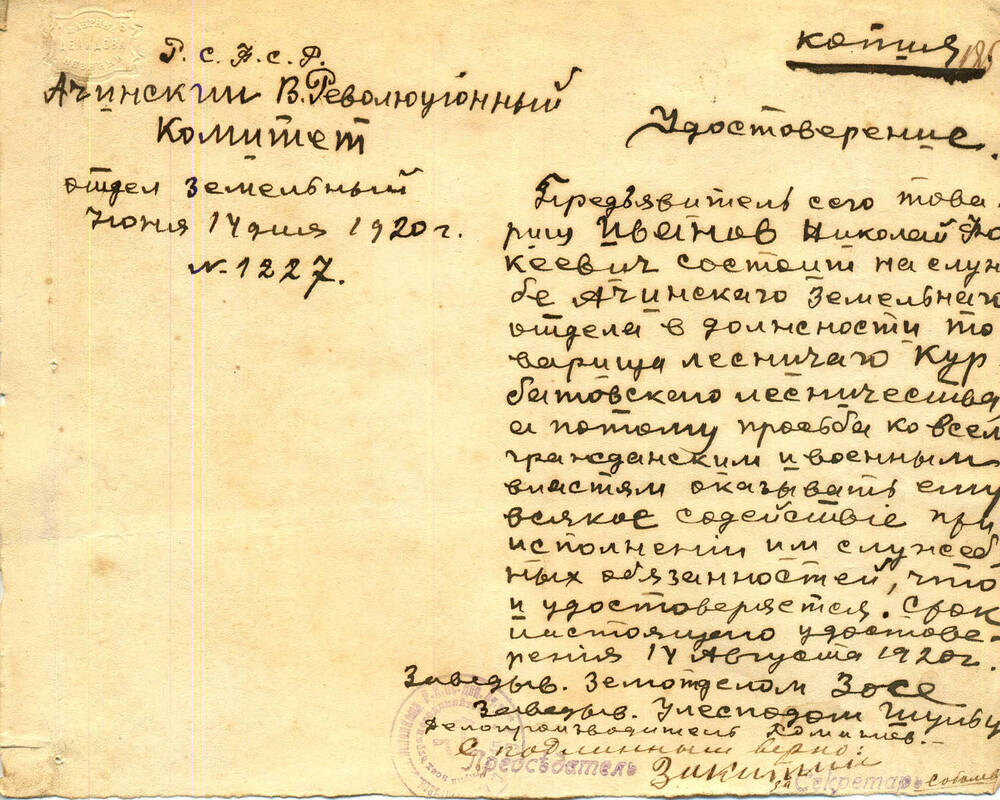 копия
Р. С. Ф. С. Р.
Ачинский В. Революціонный
Комитет
отдел Земельный
Июня 14 дня 1920 г.
№ 1227.
Удостоверение.
Предъявитель сего това-
рищ Иванов Николай Фо
кеевич состоит на служ
бе Ачинскаго Земельнаго
отдела в должности то
варища лесничаго Кур
батовскаго лесничества
а потому просьба ко всем
гражданским и военным
властям оказывать ему
всякое содействіе при
исполненіи им служеб
ных обязанностей, что
и удостоверяется. Срок
настоящаго удостове-
ренія 14 Августа 1920 г.
Заведыв. Земотделом Зосе
Заведыв. Улесподом
Делопроизводитель
С подлинным верно:
Предсѣдатель
Секретарь